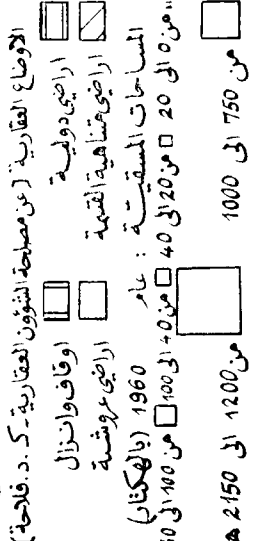 الاوضاع العقارية (عن مصلحة الشؤون العقارية ـ ك . د . فلاحة)
اوقاف وانزال
اراضي دولية
اراضي عروشية
اراضي متناهية القسمة
المساحات المسقية : عام 1960 (بالهكتار)
من 0 الى 20 من 20 الى 40 من 40 الى 100 من 100 الى
من 750 الى 1000
من 1200 الى 2150 هـ